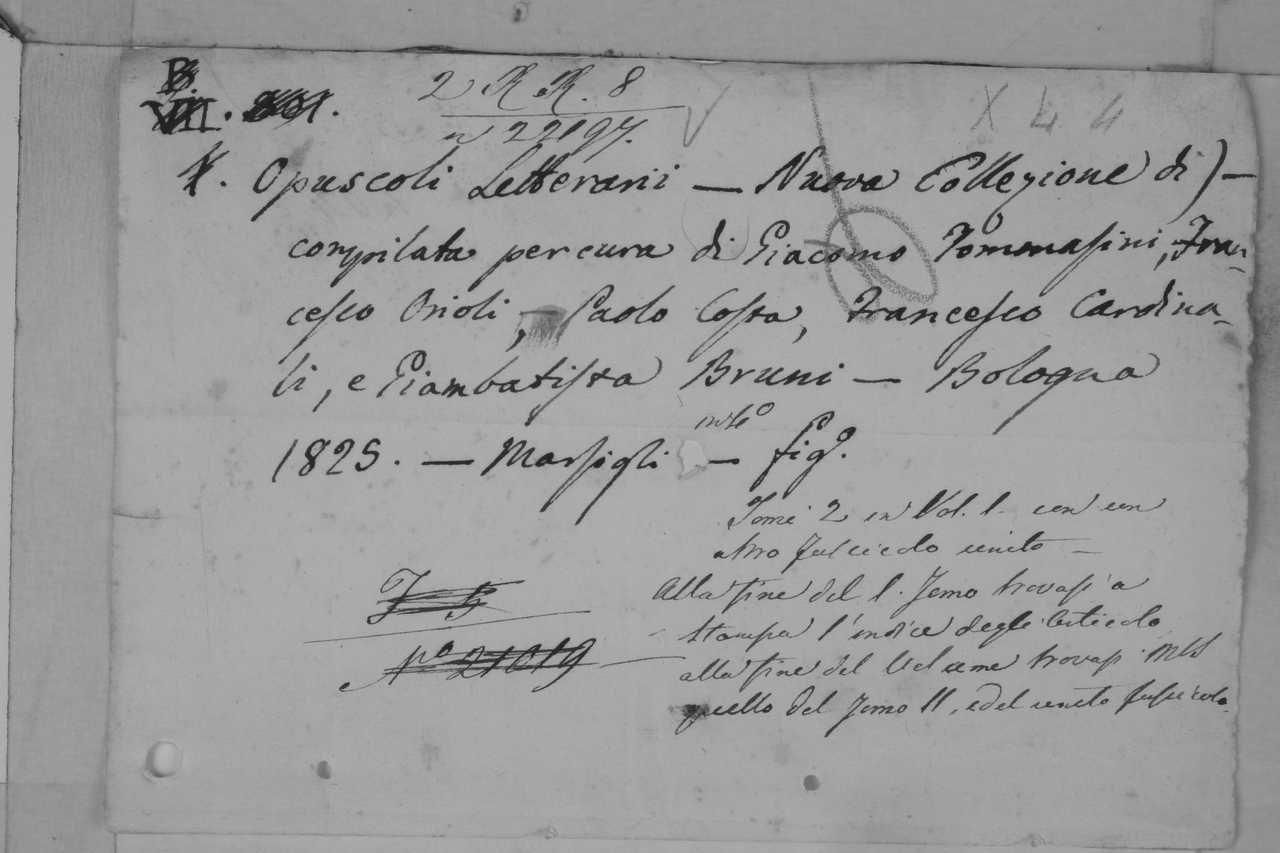 B.
VII.
2 R R. 8
n 22197.
X 44
Opuscoli Letterarii — Nuova Collezione di) —
compilata per cura di Giacomo Tommasini, Fran-
cesco Orioli, — Paolo Costa, Francesco Cardina-
li, e Giambatista Bruni — Bologna
1825. — Marsigli — fig.º
Tomi 2 in Vol. 1. con un
altro fascicolo unito —
Alla fine del 1. Tomo trovasi a
stampa l'indice degli articoli
alla fine del Volume trovasi MS
quello del Tomo II, e del unito fascicolo
Nº 21019